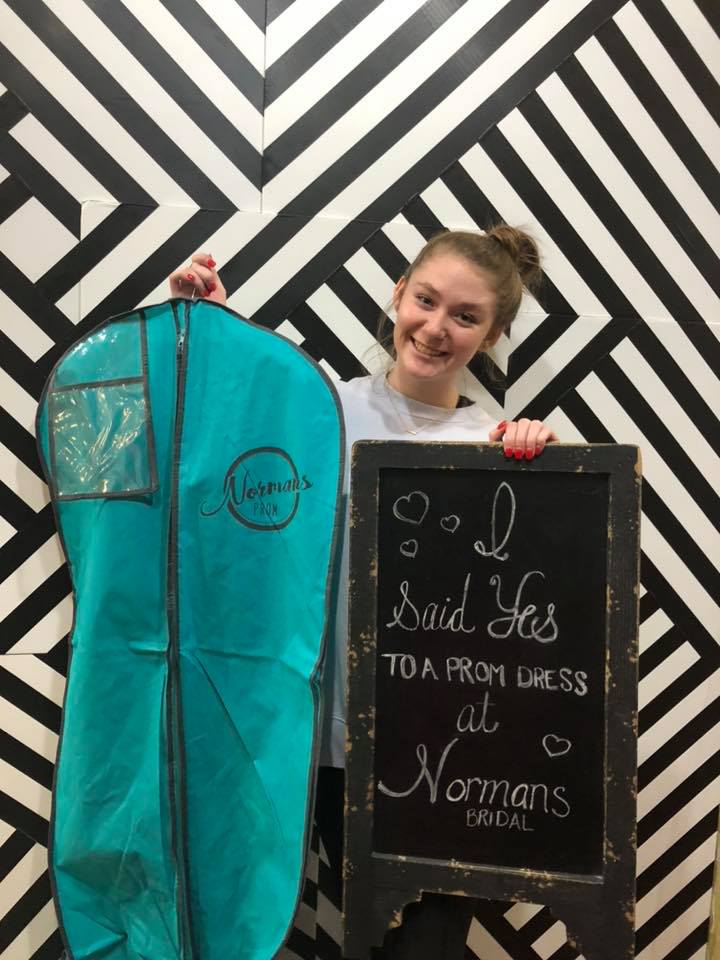 Normans
PROM
I
Said Yes
TO A PROM DRESS
at
Normans
BRIDAL